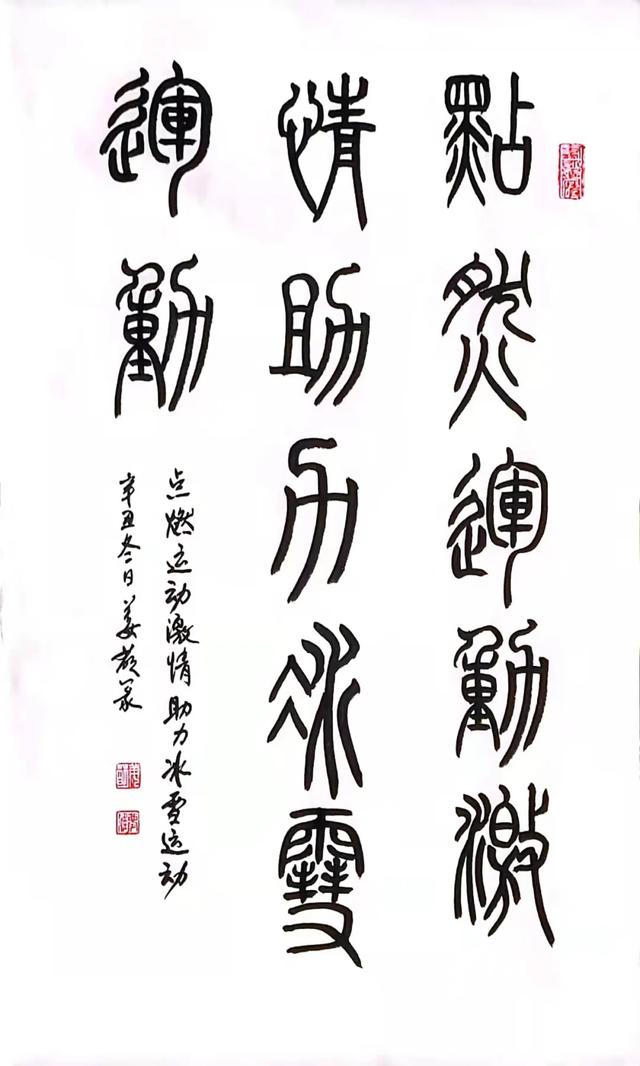 點然運動激
情助力冰雪
運動
点燃运动激情助力冰雪运动
辛丑冬日姜篆